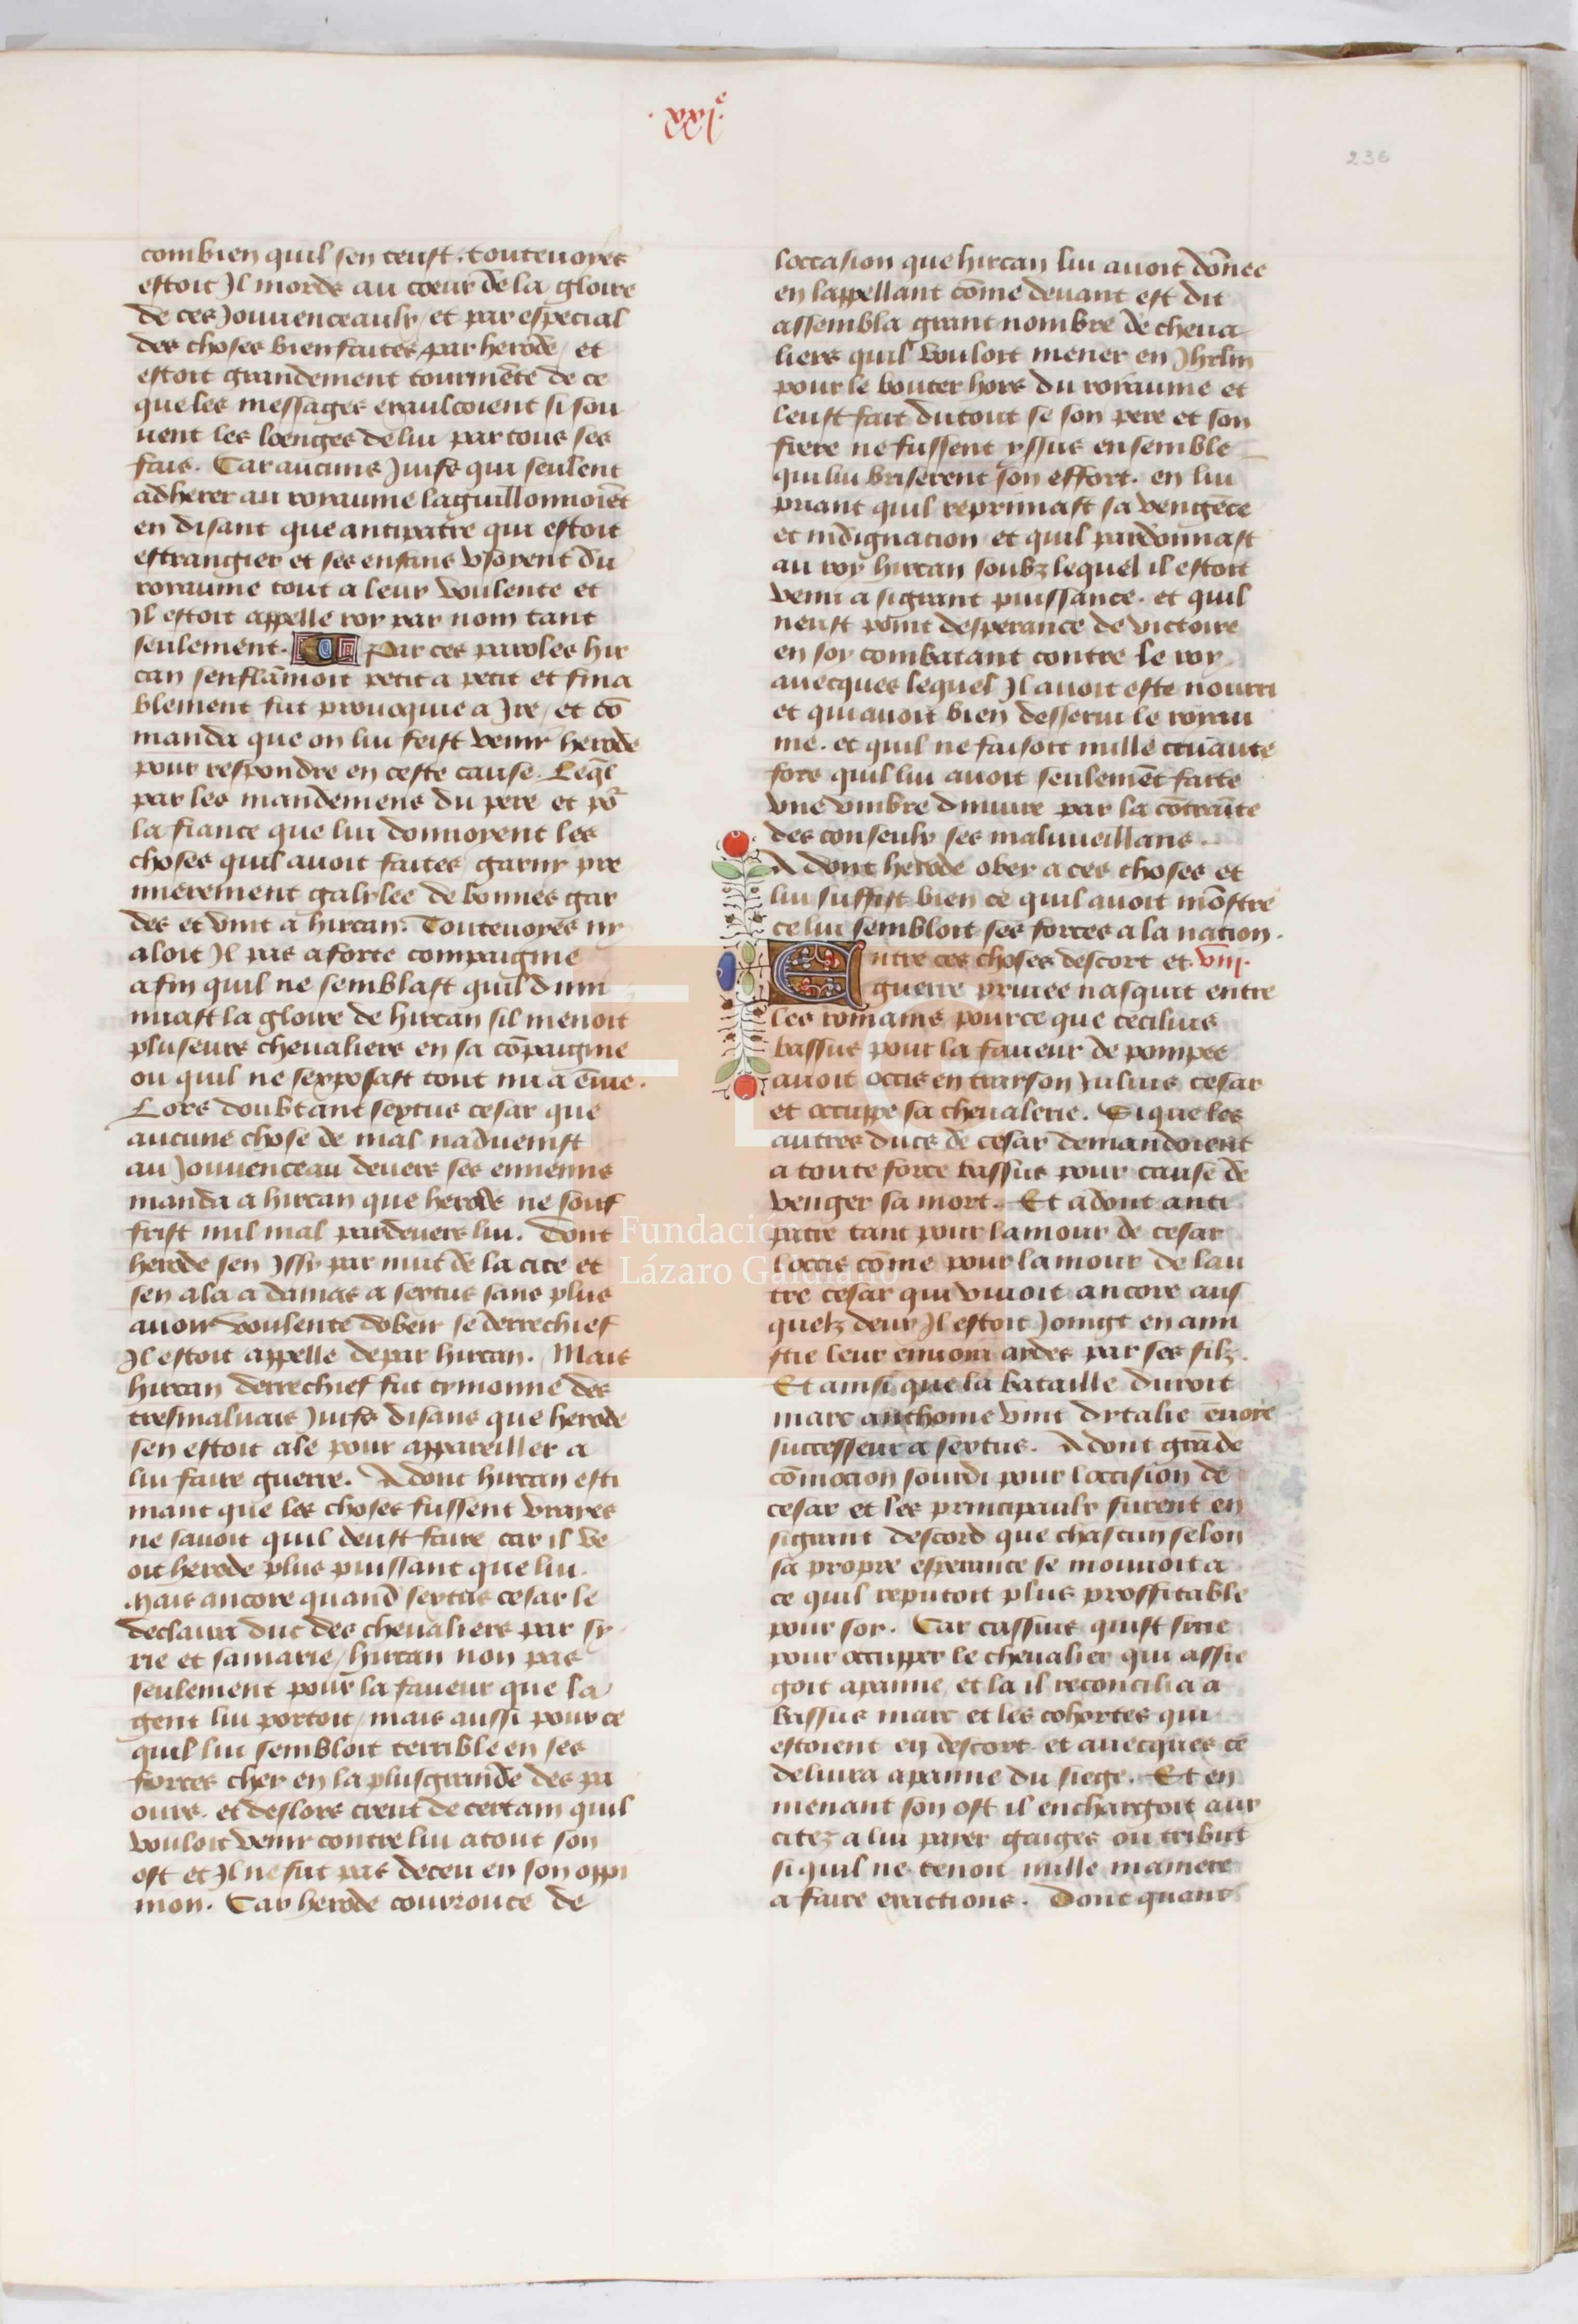 .xxj.e
236
combien quil sen teust. touteuoyes
estoit Il mords au coeur de la gloire
de ces Jouuenceaulx / et par especial
des choses bien faites par herode / et
estoit grandement tourmēte de ce
que les messages exaulcoient si sou
uent les loenges de lui par tous ses
fais. Car aucuns Juifs qui seulent
adherer au royaume laguillonnoiēt
en disant que antipatre qui estoit
estrangier et ses enfans vsoyent du
royaume tout a leur voulente et
Il estoit appelle roy par nom tant
seulement. Par ces paroles hir
can senflāmoit petit a petit et fina
blement fut prouoquie a Ire / et cō
manda que on lui feist venir herode
pour respondre en ceste cause. Leql̄
par les mandemens du pere et po᷑
la fiance que lui donnoyent les
choses quil auoit faites / garny pre
mierement galylee de bonnes gar
des et vint a hircan. Touteuoyes ny
aloit Il pas a forte compaignie
afin quil ne semblast quil dimi
nuast la gloire de hircan sil menoit
pluseurs cheualiers en sa cōpaignie
ou quil ne sexposast tout nu a ēuie.
Lors doubtant sextus cesar que
aucune chose de mal naduenist
au Jouuenceau deuers ses ennemis
manda a hircan que herode ne souf
frist nul mal pardeuers lui. Dont
herode sen Issy par nuit de la cite et
sen ala a damas a sextus sans plus
auoir voulente dobeir se derrechief
Il estoit appelle depar hircan. Mais
hircan derrechief fut tymonne des
tresmaluais Juifs disans que herode
sen estoit ale pour appareillier a
lui faire guerre. Adont hircan esti
mant que les choses fussent vrayes
ne sauoit quil deust faire car il ve
oit herode plus puissant que lui.
Mais ancore quand sextus cesar le
declaira duc des cheualiers par sy
rie et samarie / hircan non pas
seulement pour la faueur que la
gent lui portoit / mais aussi pour ce
quil lui sembloit terrible en ses
forces cher en la plusgrande des pa
ours. et deslors creut de certain quil
vouloit venir contre lui atout son
ost et Il ne fut pas deceu en son oppi
nion. Car herode courrouce de
loccasion que hircan lui auoit dōnee
en lappellant cōme deuant est dit
assembla grant nombre de cheua
liers quil vouloit mener en Jhrlm
pour le bouter hors du royaume et
leust fait du tout se son pere et son
frere ne fussent yssus ensemble
qui lui briserent son effort. en lui
priant quil reprimast sa vengēce
et indignacion et quil pardonnast
au roy hircan soubz lequel il estoit
venu a sigrant puissance. et quil
neust point desperance de victoire
en soy combatant contre le roy
auecques lequel Il auoit este nourri
et qui auoit bien desserui le royau
me. et quil ne faisoit nulle cruaute
fors quil lui auoit seulemēt faite
vne vmbre diniure par la cōtraīte
des conseulx ses malueillans.
Adont herode obey a ces choses et
lui suffist bien ce quil auoit mōstre
ce lui sembloit ses forces a la nation.
Entre ces choses descort et viij.
guerre priuee nasquit entre
les romains pource que cecilius
bassus pour la faueur de pompee
auoit occis en trayson Julius cesar
et occuppe sa cheualerie. Si que les
autres ducs de cesar demandoient
a toute force bassus pour cause de
venger sa mort. Et adont anti
patre tant pour lamour de cesar
loccis cōme pour lamour de lau
tre cesar qui viuoit ancore aus
quelz deux Il estoit Joingt en ami
stie leur enuoia aydes par ses filz.
Et ainsi que la bataille duroit
marc anthoine vint dytalie ēuoye
successeur a sextus. Adont grāde
cōmocion sourdi pour loccision de
cesar et les principaulx furent en
sigrant descord que chascun selon
sa propre esperance se mouuoit a
ce quil reputoit plus proffitable
pour soy. Car cassius quist sirie
pour occupper le cheualier qui assie
goit apamie et la il reconcilia a
bassus marc et les cohortes qui
estoient en descort. et auecques ce
deliura apamie du siege. Et en
menant son ost il enchargoit aux
citez a lui payer gaiges ou tribut
si quil ne tenoit nulle maniere
a faire exactions. Dont quant
Fundación
Lázaro Galdiano